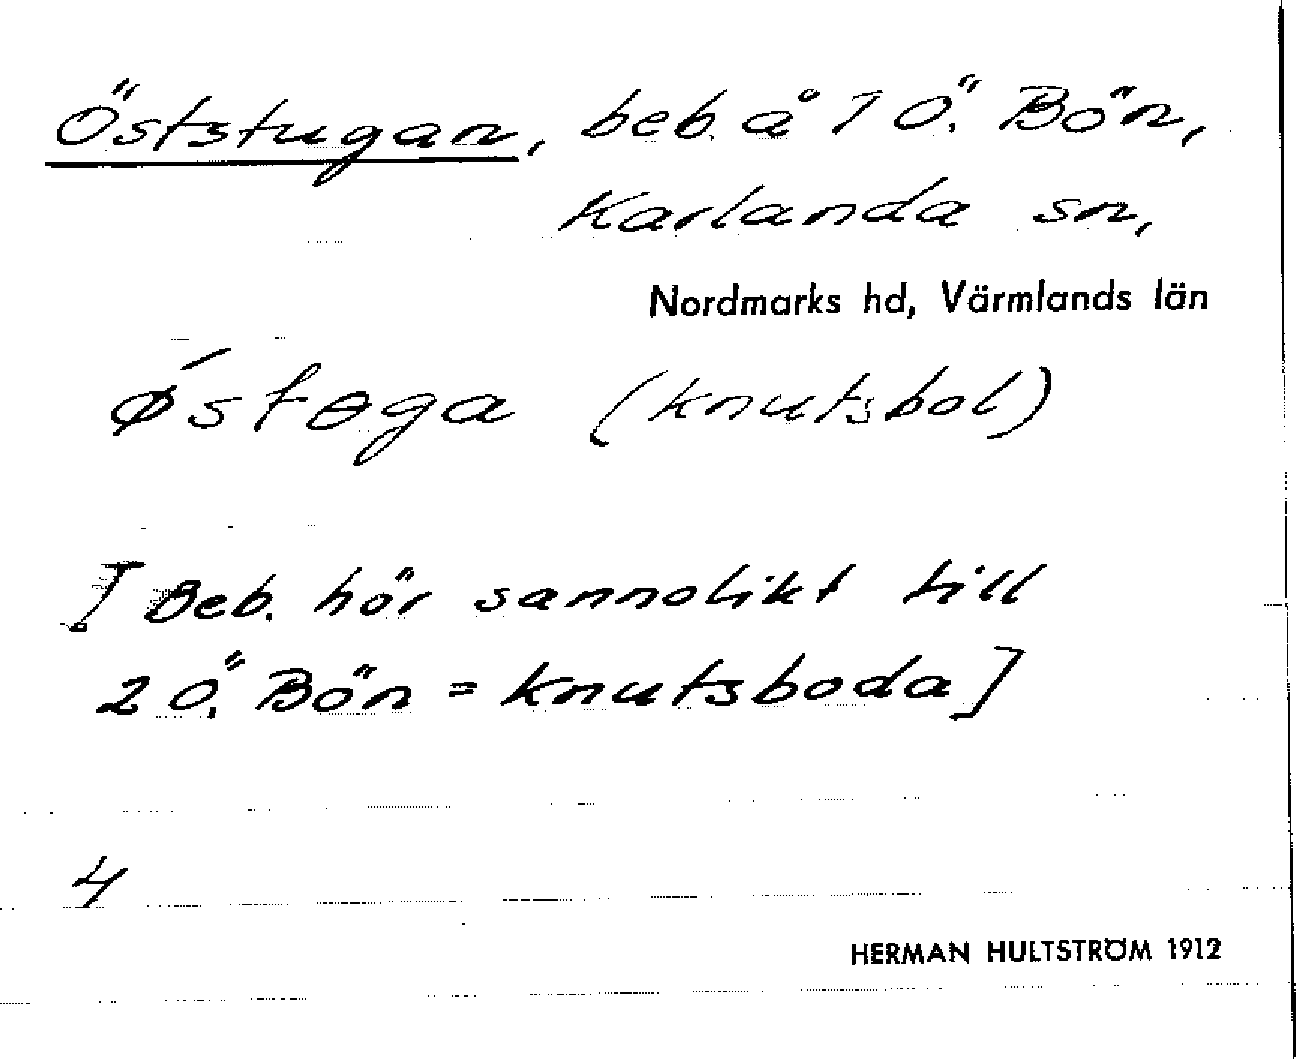 Öststugan, beb. å 1 Ö. Bön,
Karlanda sn,
Nordmarks hd, Värmlands län
ǿstɵga (knutsbol)
[Beb. hör sannolikt till
2 Ö. Bön = Knutsboda]
4
HERMAN HULTSTRÖM 1912